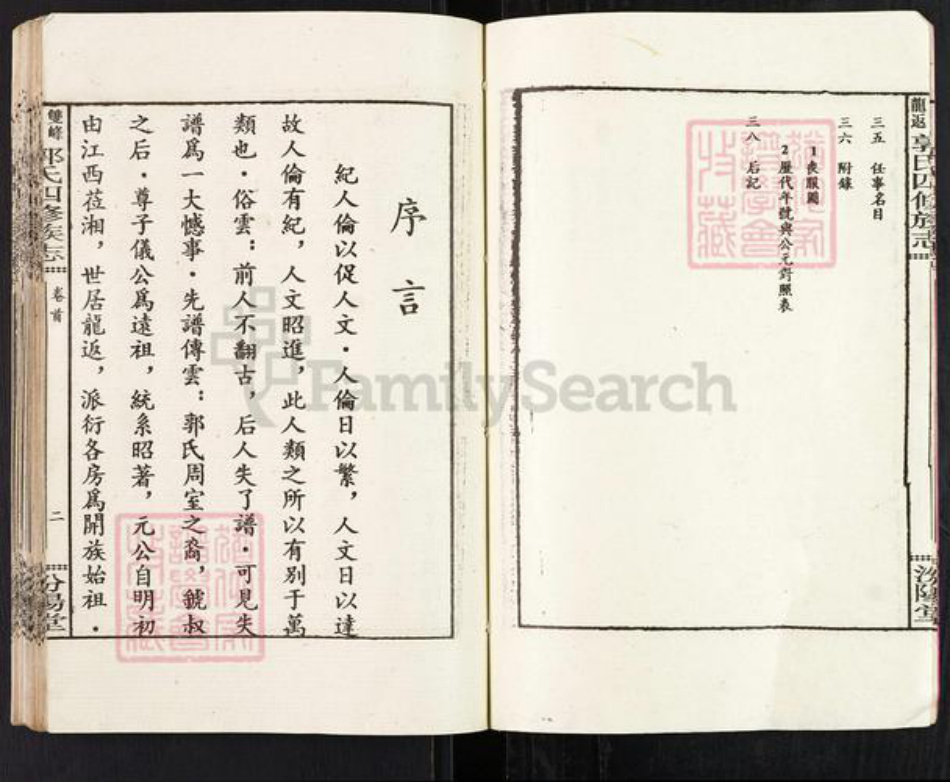 龍返 郭氏四修族志
汾陽堂
三五 任事名目
三六 附錄
1 喪服圖
2 歷代年號與公元對照表
三八 后記
序言
紀人倫以促人文·人倫日以繁，人文日以達
故人倫有紀，人文昭進，此人類之所以有別于萬
類也·俗雲：前人不翻古，后人失了譜·可見失
譜爲一大憾事·先譜傳雲：郭氏周室之裔，虢叔
之后·尊子儀公爲遠祖，統系昭著，元公自明初
由江西莅湘，世居龍返，派衍各房爲開族始祖·
雙峰 郭氏四修族志
卷首
二
汾陽堂
FamilySearch